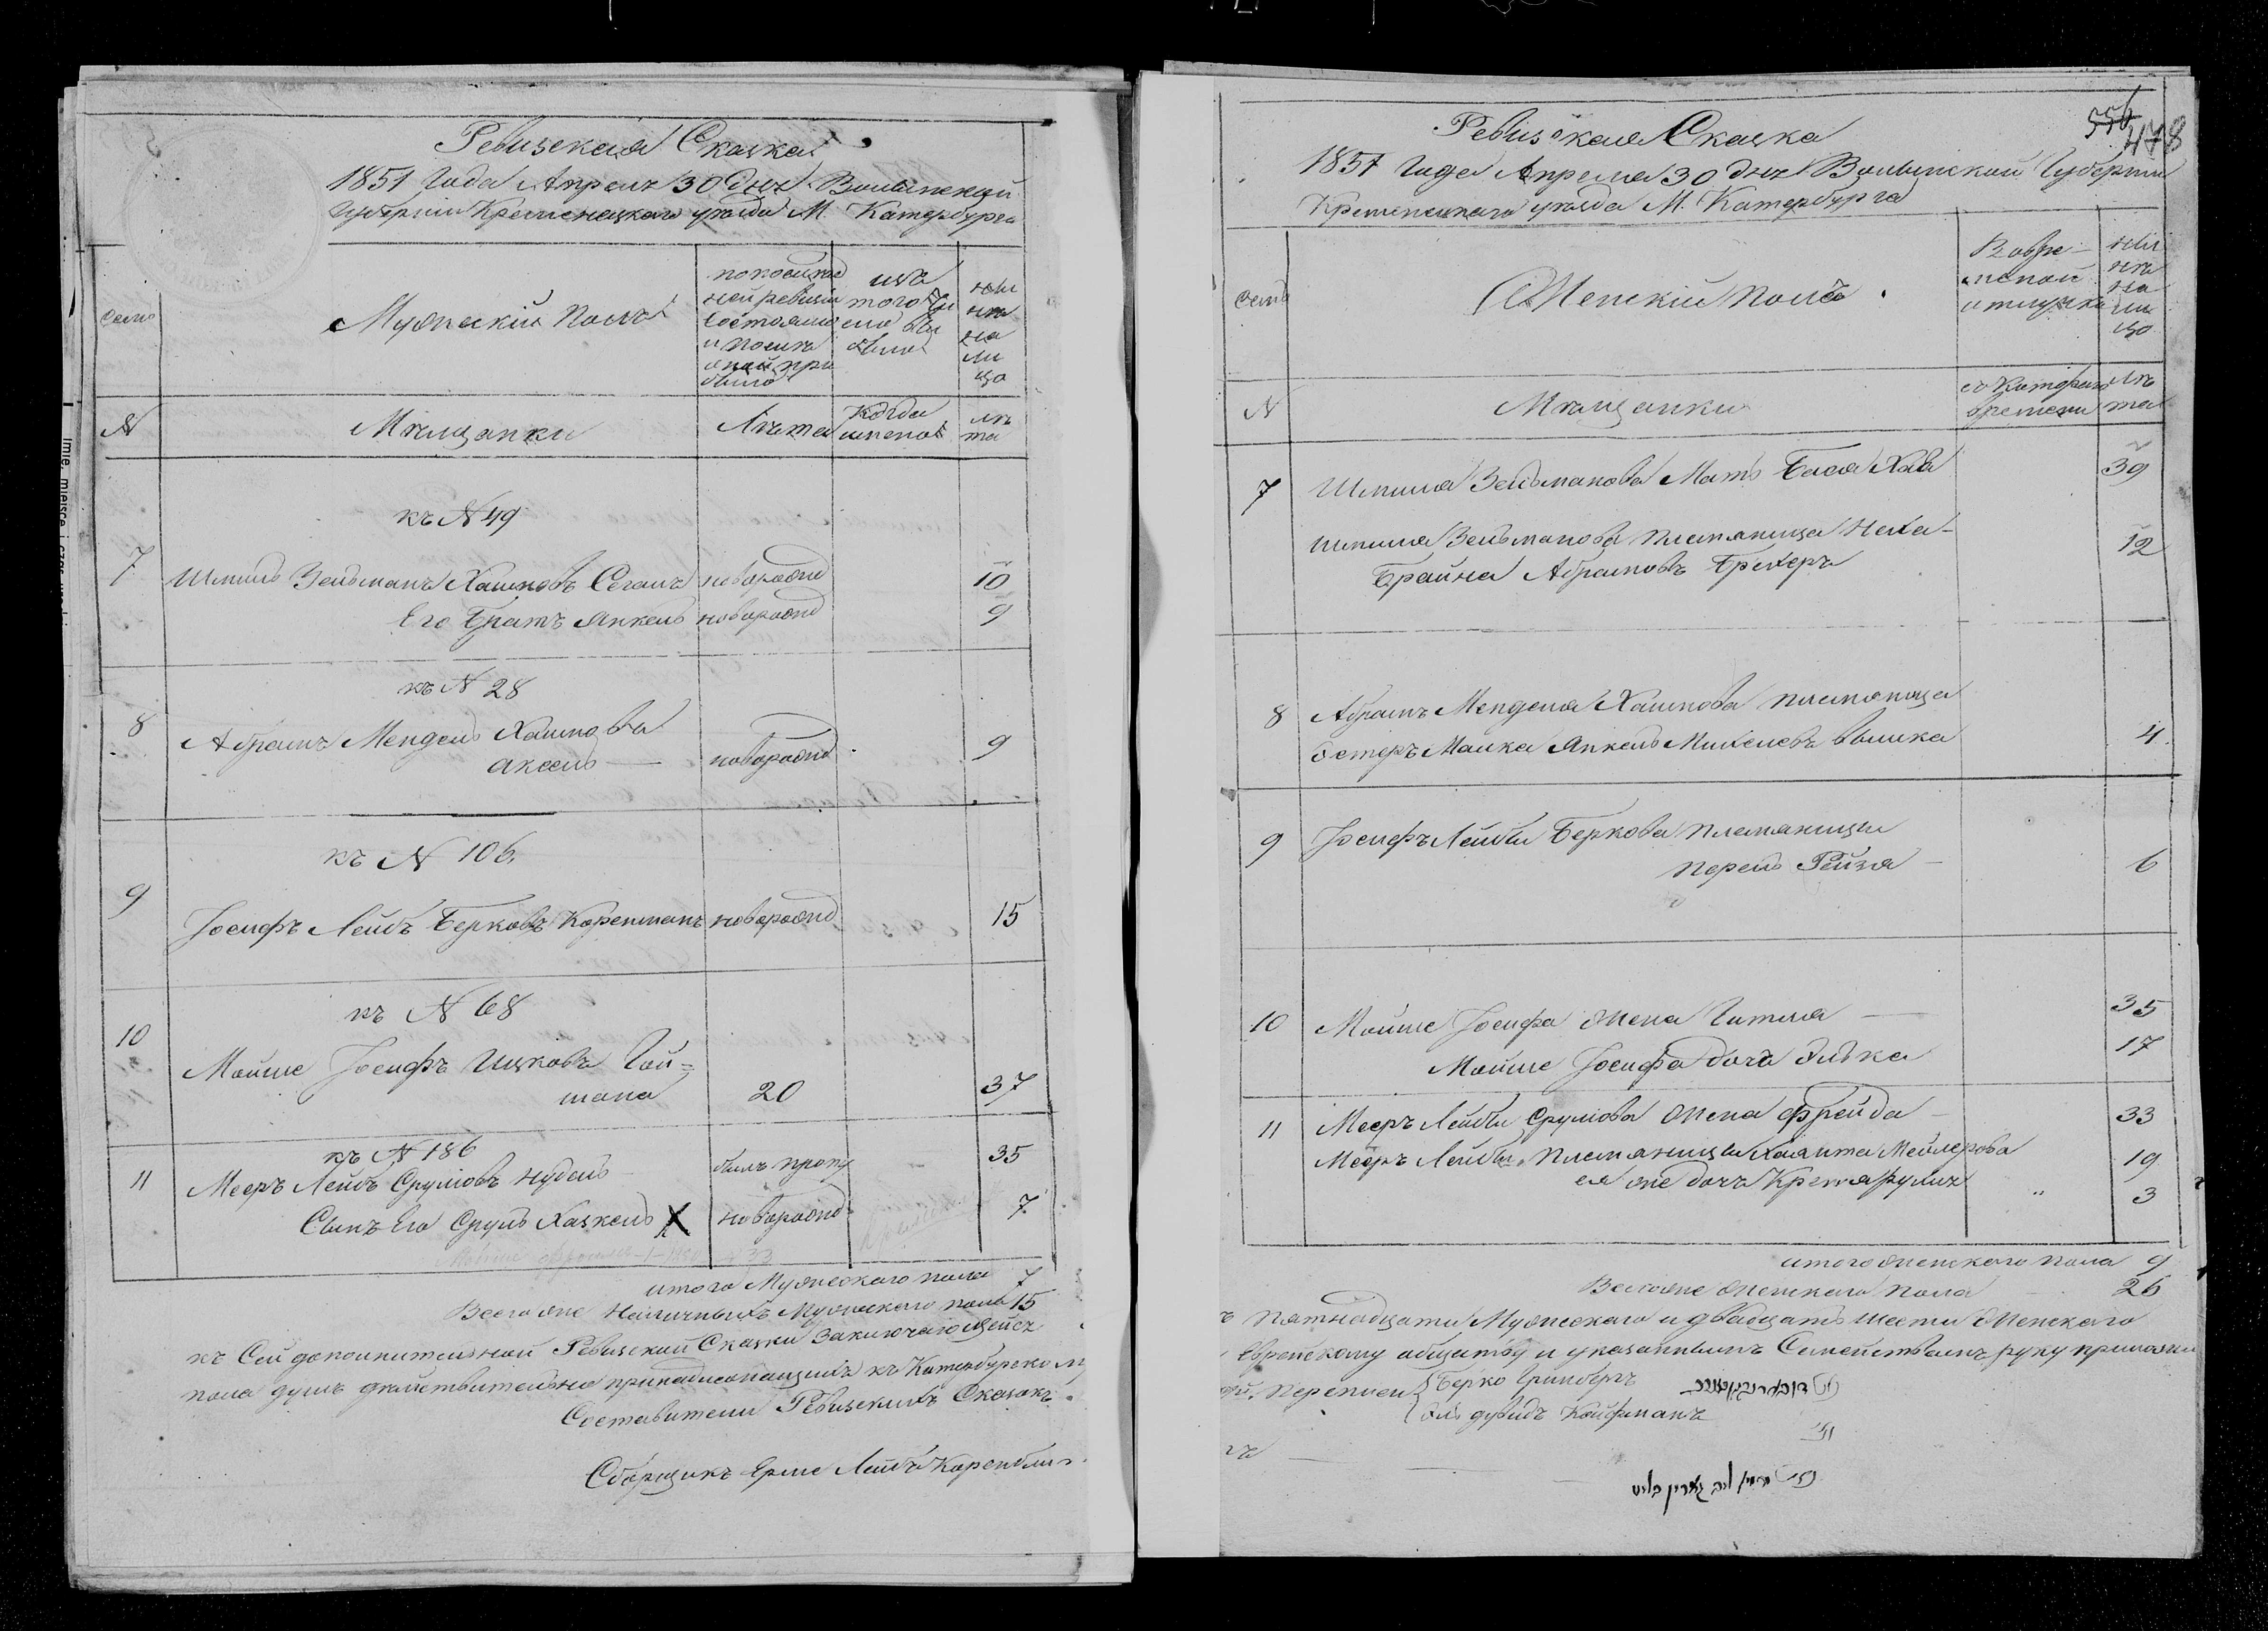 Ревизская Сказка
1851 Года Апреля 30 дня Волынской
Губернiи Кременецкаго уезда М. Катербурга
семьи
Мужескiй полъ
по последней ревизiи состояло и после оной прибыло
изъ того числа выбыло
ныне на лицо
N
Мѣщанки
Лѣта
когда именно
лѣта
къ N 49
7
Шмиль Зельманъ Хаимовъ Сеганъ новорожд 10
Его братъ Янкель новорожд 9
къ N 28
8
Абрамъ Мендель Хаимовъ
Аксель — новорожд 9
къ N 106.
9
Iосифъ Лейбъ Берковъ Коренманъ новорожд 15
къ N 68
10
Мойше Iосифъ Ицковъ Гой=
мана 20 37
къ N 186
11
Мееръ Лейбъ Срулiовъ Нудель былъ пропу 35
Сынъ Его Сруль Хацкель X новорожд 7
итого Мужескаго пола 7
Всего же Наличныхъ Мужескаго пола 15
къ Сей дополнительной Ревизской Сказки Заключающейся
пола душъ действительно принадлежащихъ къ Катербурскому
Составители Ревизскихъ Сказокъ
Сборщикъ Ерше Лейбъ Коренблит
556
478
Ревизская Сказка
1851 Года Апреля 30 дня Волынской Губернiи
Кременецкаго уезда М. Катербурга
семьи
Женскiй полъ
Во временной отлучке
ныне на лицо
N
Мѣщанки
съ Котораго времени
лѣта
7 Шмиля Зельманова Мать Бася Хая 39
Шмиля Зельманова племяница Неха- 12
Брайна Абрамовъ Брехеръ
8 Абрамъ Менделя Хаимова племяница
Эстеръ Малка Янкель Михелевъ 4
9 Iосифъ Лейбы Беркова племяницы
Перель Рейзя — 6
10 Мойше Iосифа жена Гитля — 35
Мойше Iосифа дочь Ривка 17
11 Мееръ Лейбы Срулiова жена Фрейда — 33
Мееръ Лейбы племяницы 19
ея же дочь 3
итого женскаго пола 9
Всего же женскаго пола — 26
ъ пятнадцати Мужескаго и двадцать шести Женскаго
Еврейскому обществу и указаннымъ Семействамъ руку приложи
Переписи Берко Гринбергъ
дувидъ Койфманъ